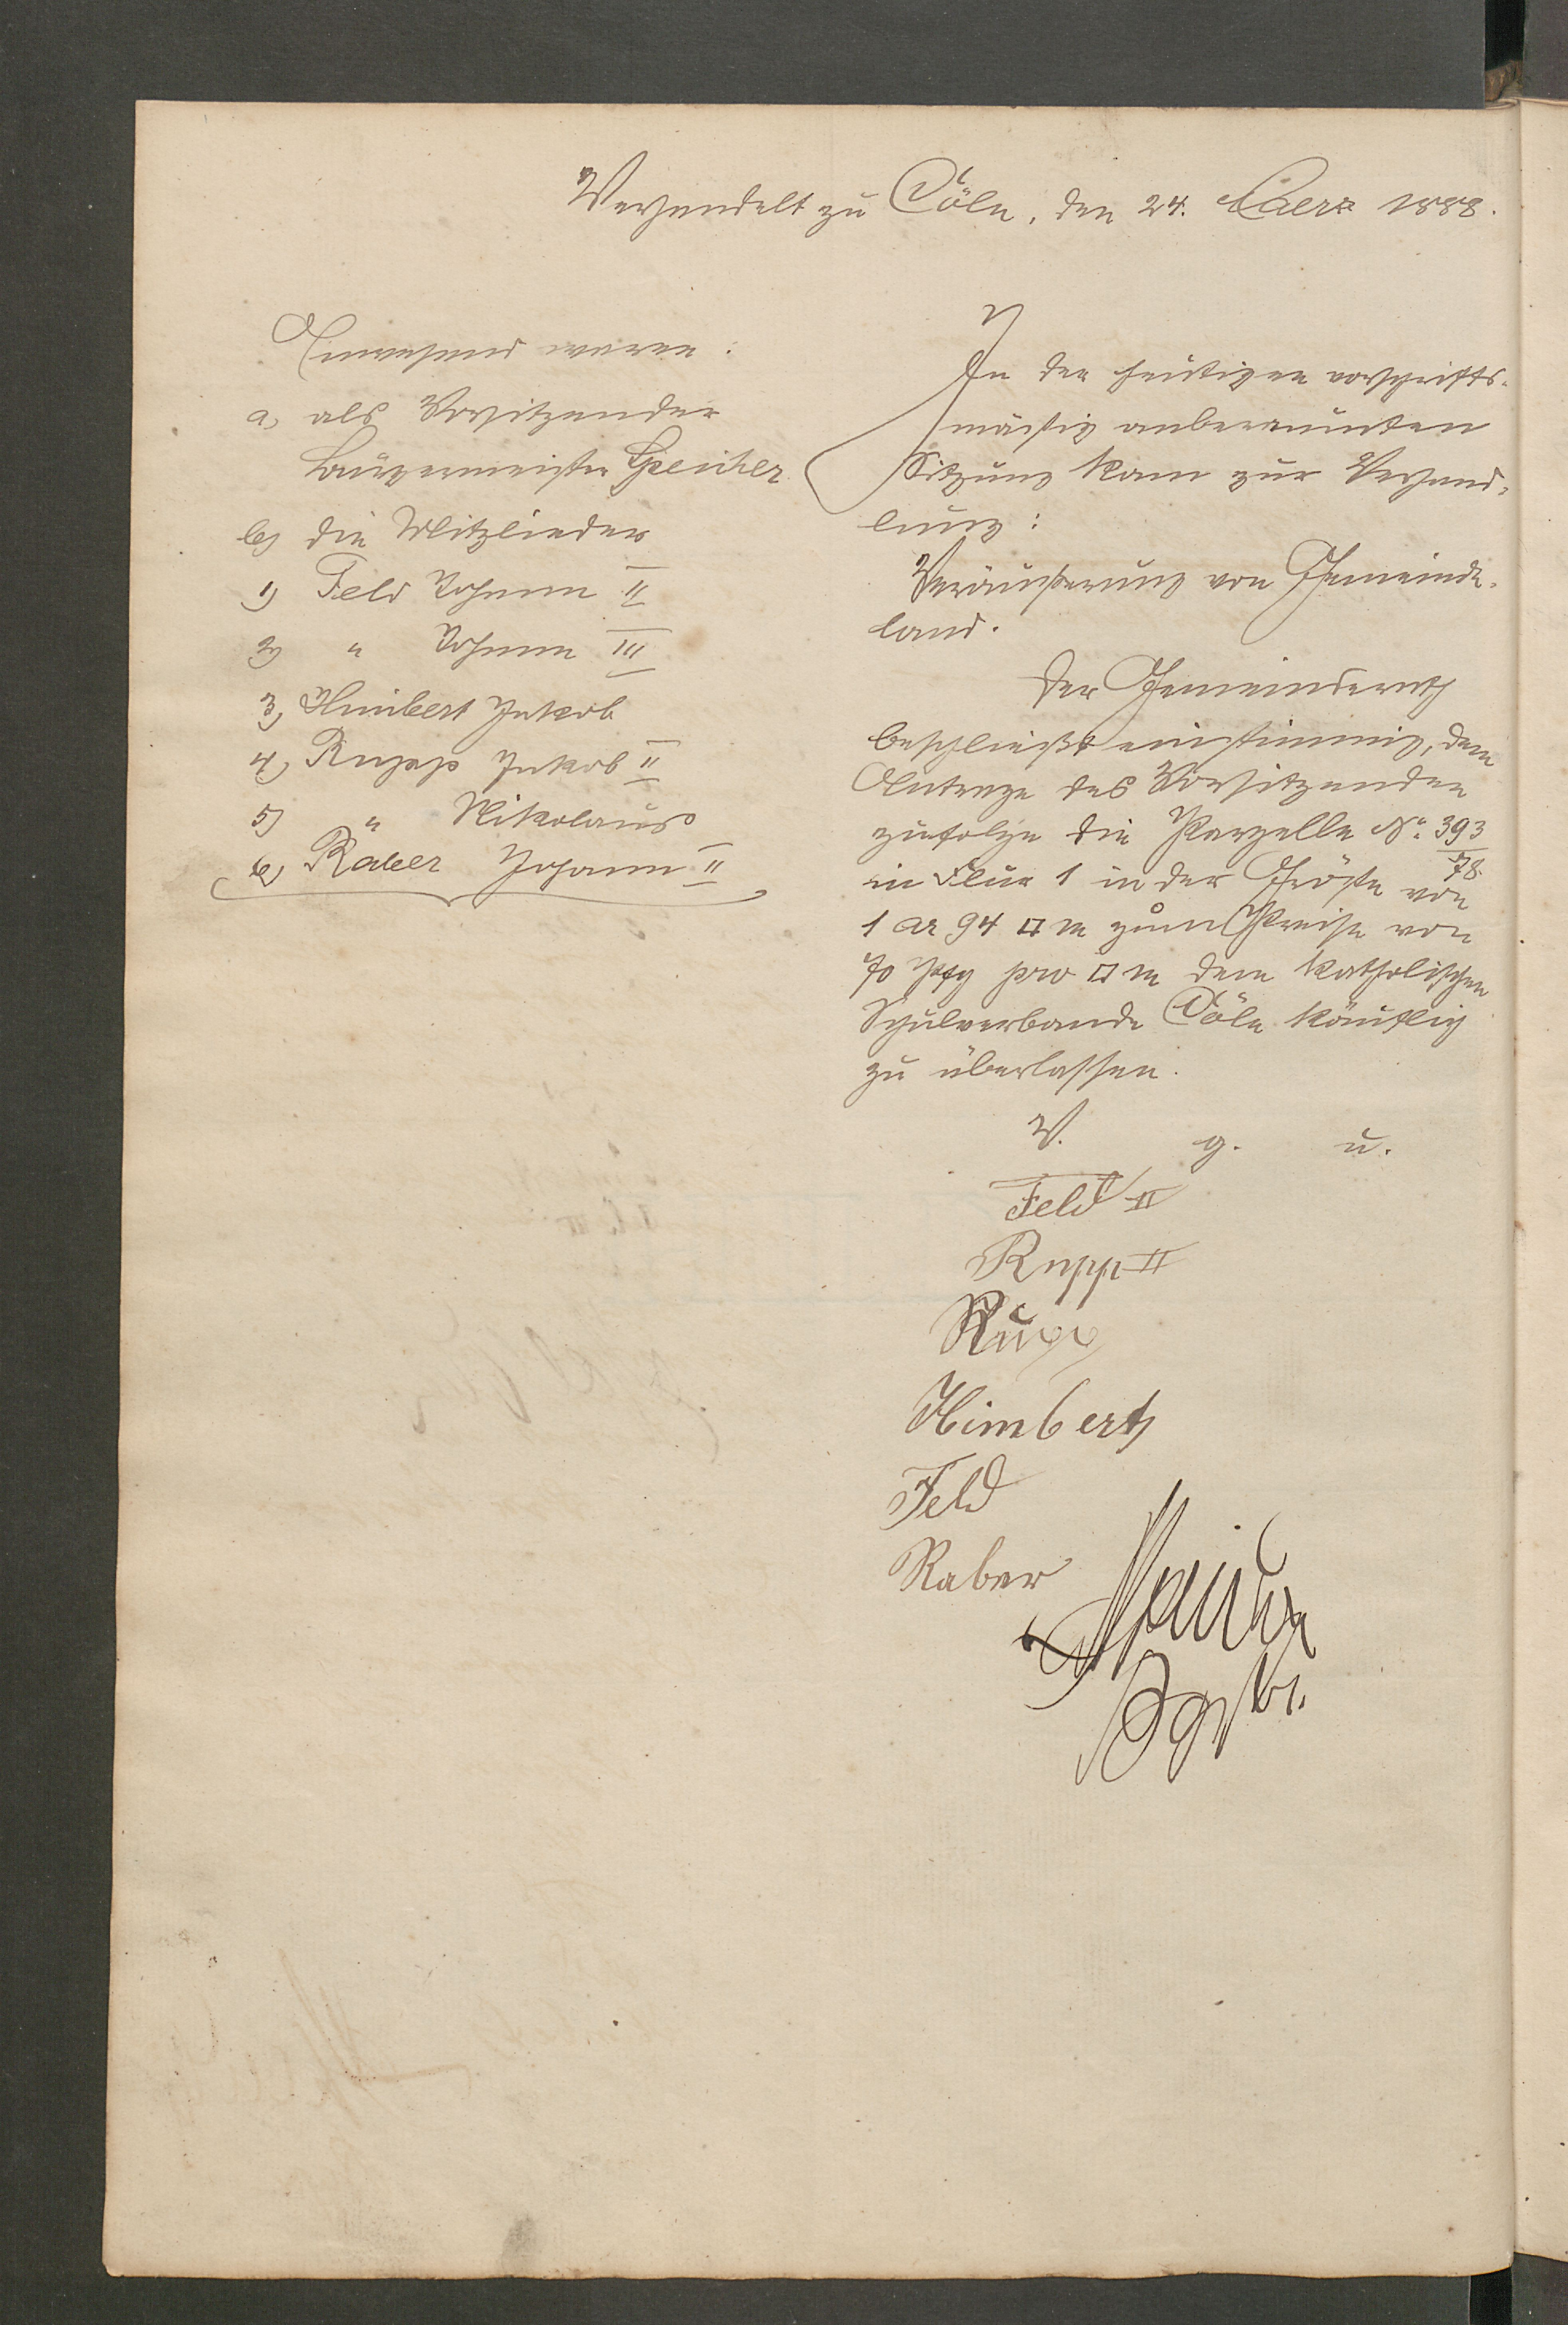 Verhandelt zu Cöln, den 24. Maerz 1888.
Anwesend waren:
a, als Vorsitzender
Bürgermeister Speicher
b, die Mitglieder
1) Feld Johann II
2) " Johann III
3, Himbert Jakob
4, Rupp Jakob II
5) " Nikolaus
6, Raber Johann II
In der heutigen vorschrifts-
mäßig anberaumten
Sitzung kam zur Verhand-
lung:
Veräußerung von Gemeinde-
land.
Der Gemeinderath
beschließt einstimmig, dem
Antrage des Vorsitzenden
zufolge die Parzelle No. 393/78
in Flur 1 in der Größe von
1 ar 94 □ m zum Preise von
70 Pfg pro □ m dem katholischen
Schulverbande Cöln käuflich
zu überlassen.
V. g. u.
Feld II
Rupp II
Rupp
Himbert
Feld
Raber
Speicher
Bgstr.